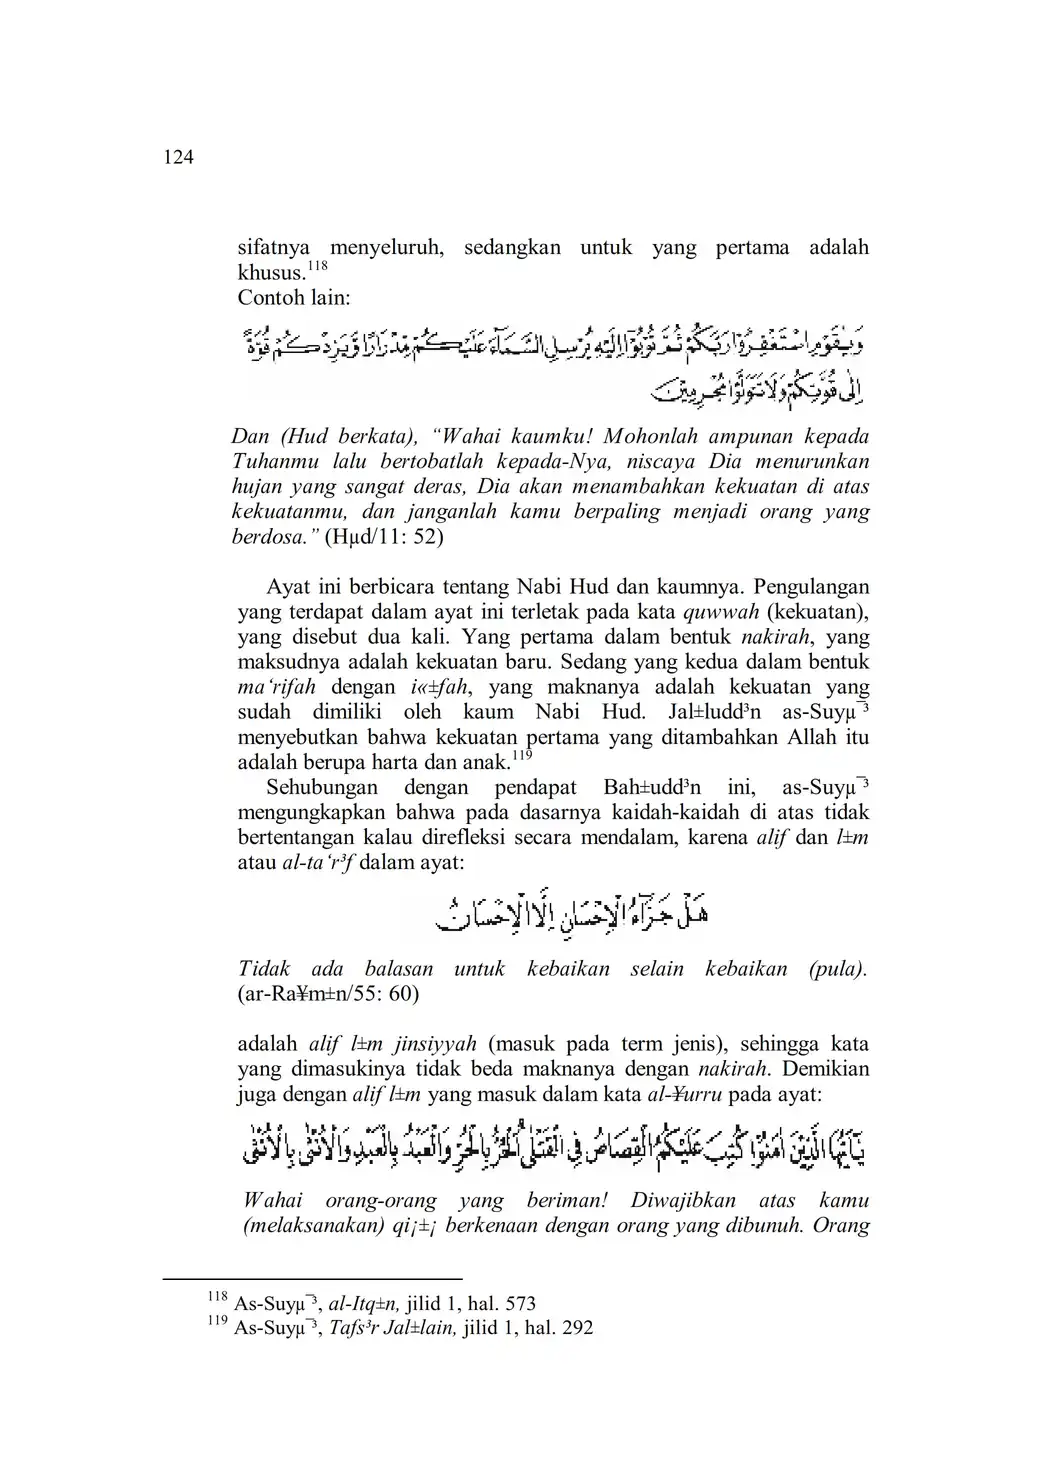 124
sifatnya menyeluruh, sedangkan untuk yang pertama adalah
khusus.118
Contoh lain:
وَيٰقَوْمِ اسْتَغْفِرُوْا رَبَّكُمْ ثُمَّ تُوْبُوْٓا اِلَيْهِ يُرْسِلِ السَّمَاۤءَ عَلَيْكُمْ مِّدْرَارًا وَّيَزِدْكُمْ قُوَّةً
اِلٰى قُوَّتِكُمْ وَلَا تَتَوَلَّوْا مُجْرِمِيْنَ
Dan (Hud berkata), “Wahai kaumku! Mohonlah ampunan kepada
Tuhanmu lalu bertobatlah kepada-Nya, niscaya Dia menurunkan
hujan yang sangat deras, Dia akan menambahkan kekuatan di atas
kekuatanmu, dan janganlah kamu berpaling menjadi orang yang
berdosa.” (Hµd/11: 52)
Ayat ini berbicara tentang Nabi Hud dan kaumnya. Pengulangan
yang terdapat dalam ayat ini terletak pada kata quwwah (kekuatan),
yang disebut dua kali. Yang pertama dalam bentuk nakirah, yang
maksudnya adalah kekuatan baru. Sedang yang kedua dalam bentuk
ma‘rifah dengan i«±fah, yang maknanya adalah kekuatan yang
sudah dimiliki oleh kaum Nabi Hud. Jal±ludd³n as-Suyµ¯³
menyebutkan bahwa kekuatan pertama yang ditambahkan Allah itu
adalah berupa harta dan anak.119
Sehubungan dengan pendapat Bah±udd³n ini, as-Suyµ¯³
mengungkapkan bahwa pada dasarnya kaidah-kaidah di atas tidak
bertentangan kalau direfleksi secara mendalam, karena alif dan l±m
atau al-ta‘r³f dalam ayat:
هَلْ جَزَاۤءُ الْاِحْسَانِ اِلَّا الْاِحْسَانُ
Tidak ada balasan untuk kebaikan selain kebaikan (pula).
(ar-Ra¥m±n/55: 60)
adalah alif l±m jinsiyyah (masuk pada term jenis), sehingga kata
yang dimasukinya tidak beda maknanya dengan nakirah. Demikian
juga dengan alif l±m yang masuk dalam kata al-¥urru pada ayat:
يٰٓاَيُّهَا الَّذِيْنَ اٰمَنُوْا كُتِبَ عَلَيْكُمُ الْقِصَاصُ فِى الْقَتْلٰىۗ اَلْحُرُّ بِالْحُرِّ وَالْعَبْدُ بِالْعَبْدِ وَالْاُنْثٰى بِالْاُنْثٰى
Wahai orang-orang yang beriman! Diwajibkan atas kamu
(melaksanakan) qi¡±¡ berkenaan dengan orang yang dibunuh. Orang
118 As-Suyµ¯³, al-Itq±n, jilid 1, hal. 573
119 As-Suyµ¯³, Tafs³r Jal±lain, jilid 1, hal. 292